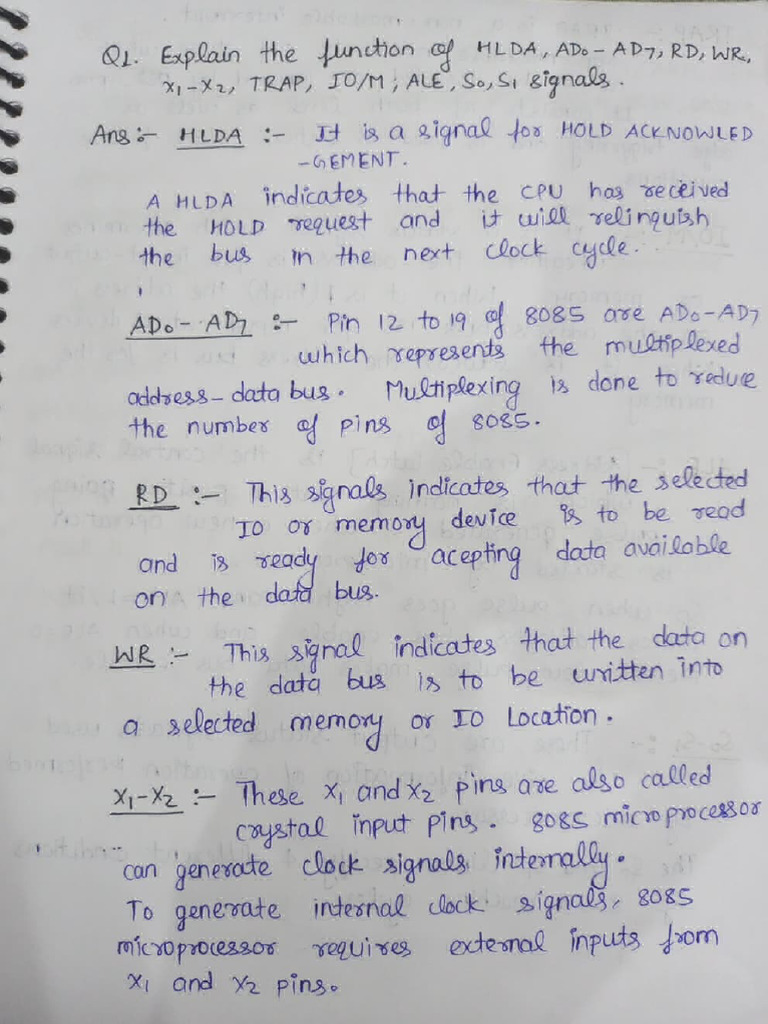 Q1. Explain the function of HLDA, AD0-AD7, RD, WR,
X1-X2, TRAP, IO/M, ALE, S0, S1 signals.
Ans:- HLDA :- It is a signal for HOLD ACKNOWLED
-GEMENT.
A HLDA indicates that the CPU has received
the HOLD request and it will relinquish
the bus in the next clock cycle.
AD0-AD7 :- Pin 12 to 19 of 8085 are AD0-AD7
which represents the multiplexed
address-data bus. Multiplexing is done to reduce
the number of pins of 8085.
RD :- This signals indicates that the selected
IO or memory device is to be read
and is ready for acepting data available
on the data bus.
WR :- This signal indicates that the data on
the data bus is to be written into
a selected memory or IO Location.
X1-X2 :- These X1 and X2 pins are also called
crystal input pins. 8085 microprocessor
can generate clock signals internally.
To generate internal clock signals, 8085
microprocessor requires external inputs from
X1 and X2 pins.